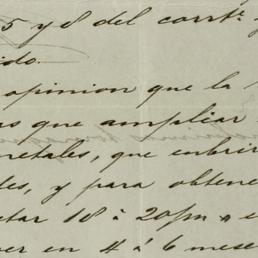 5 y 8 del corrte y
ido.
opinion que la
as que ampliar
netales, que cubrir
les, y para obtene
tar 18 à 20 pm
er en 4 á 6 mese